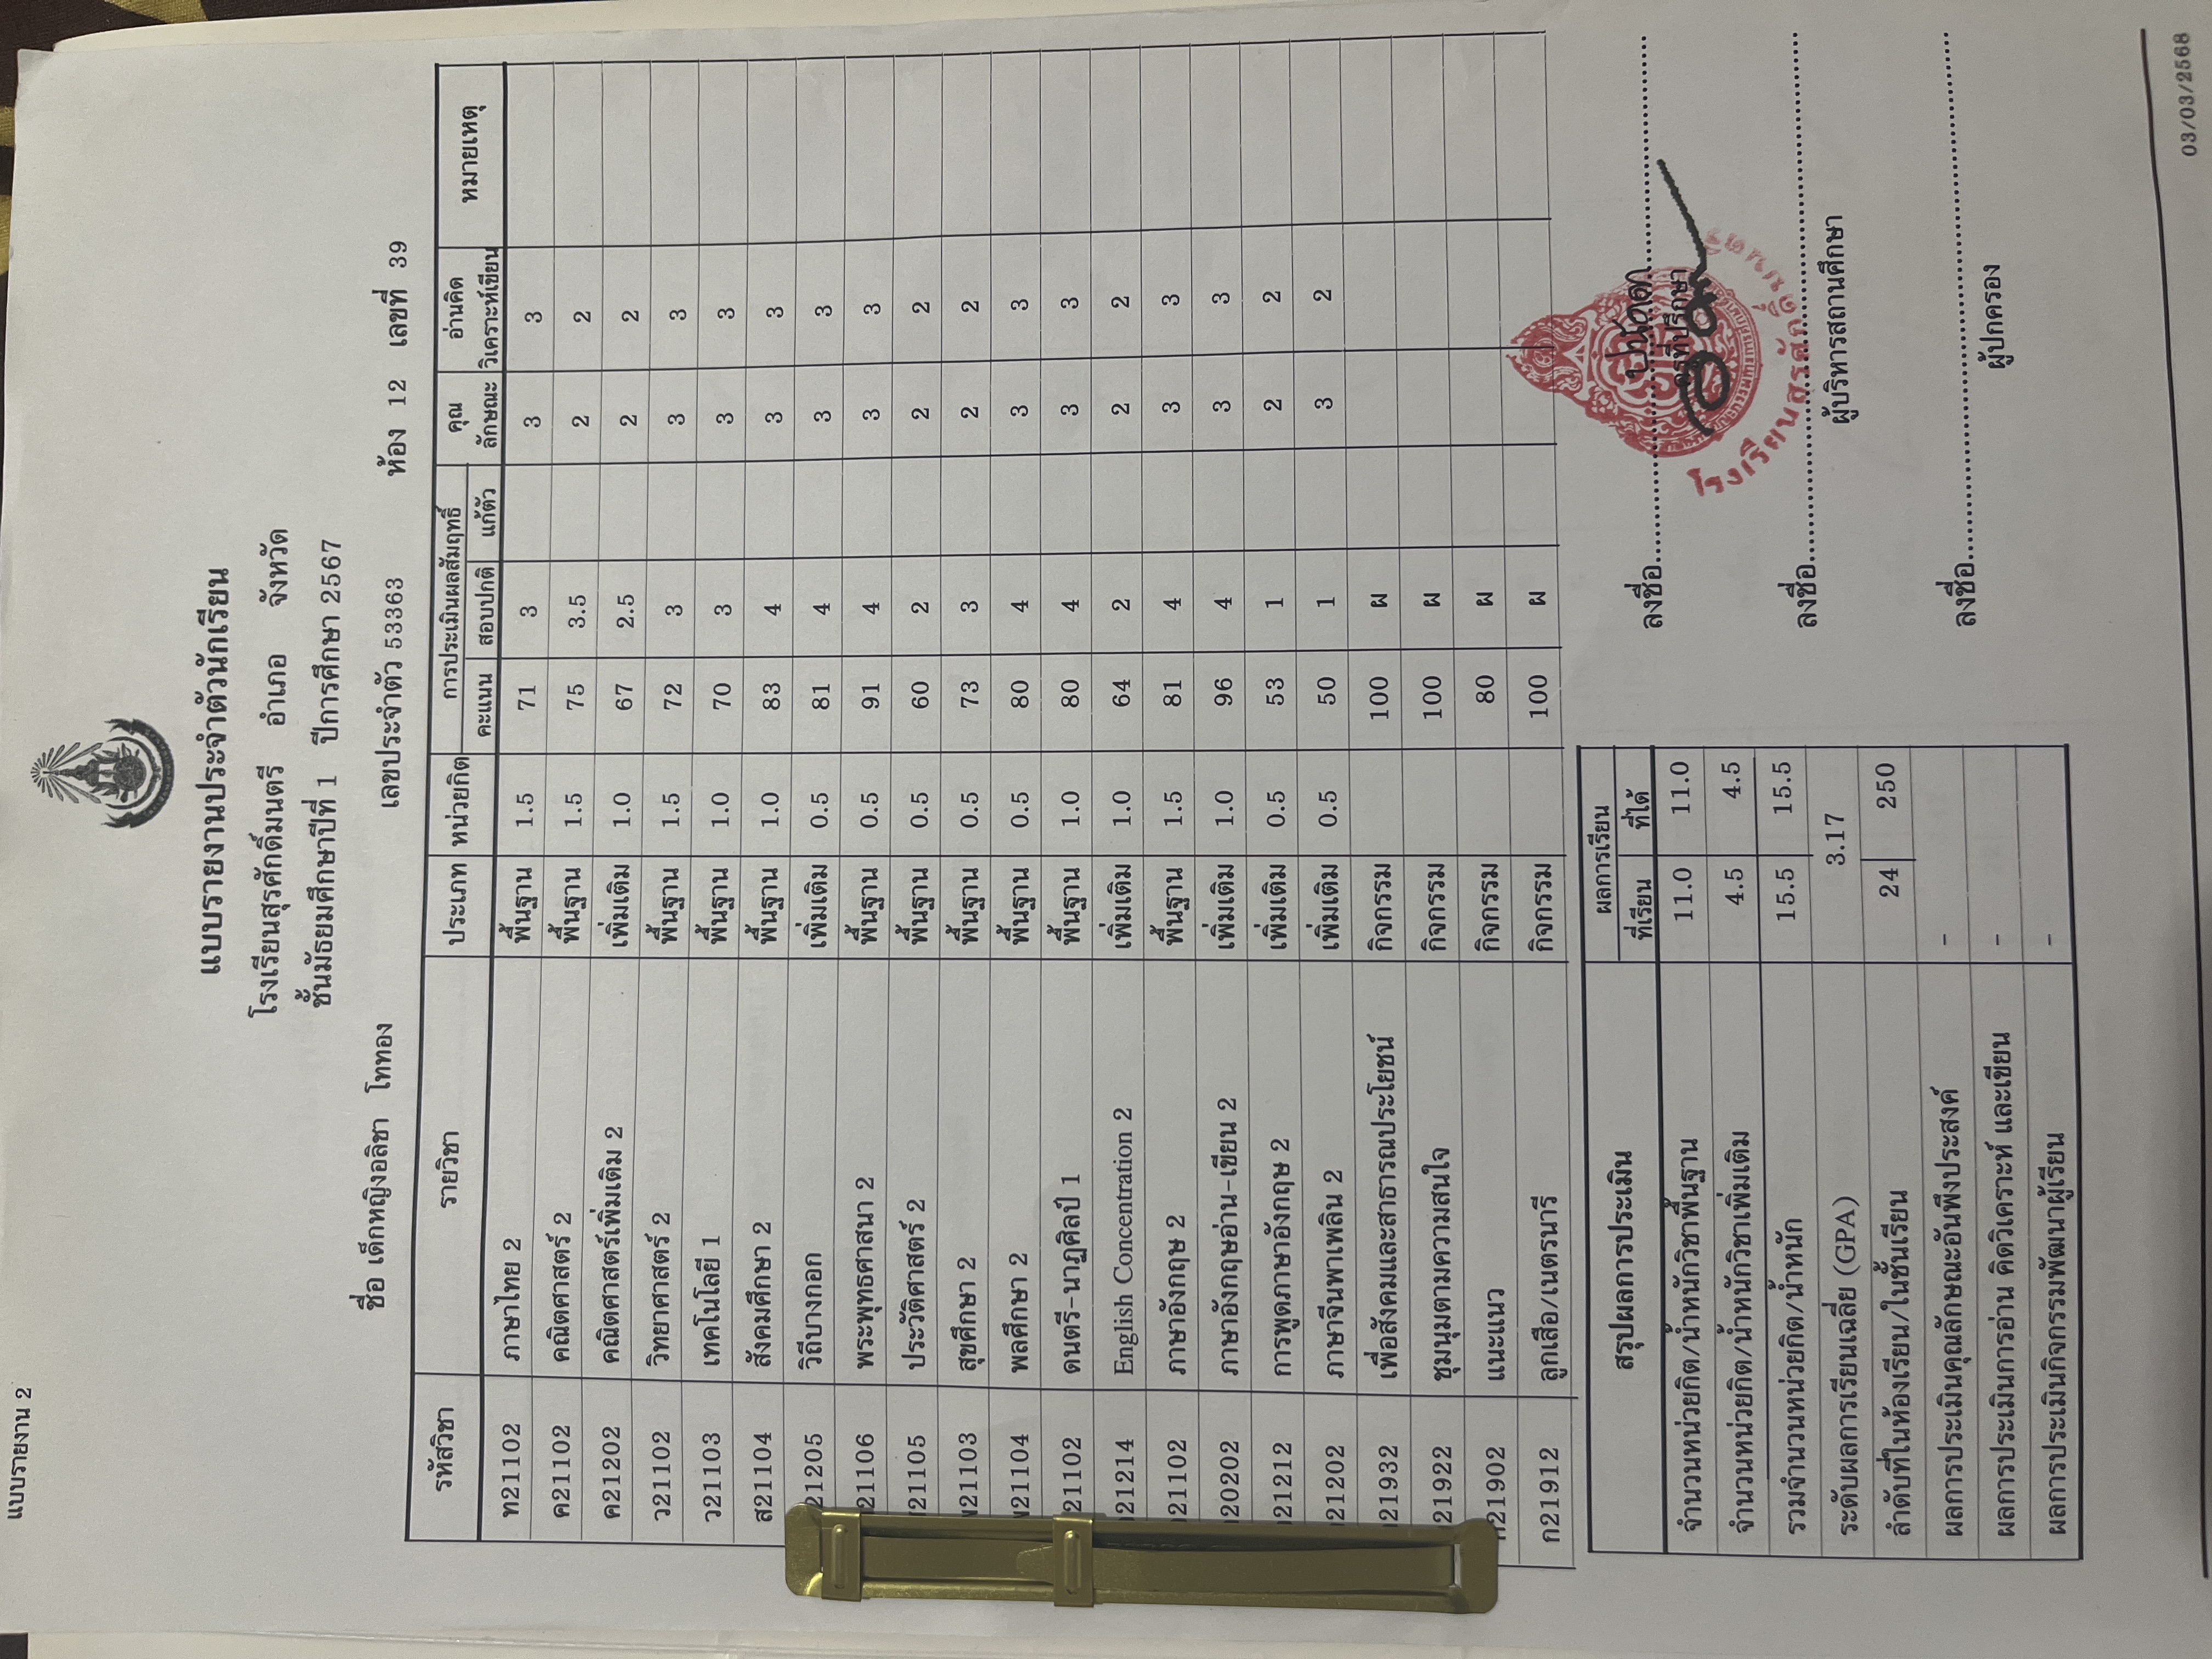 แบบรายงาน 2
แบบรายงานประจำตัวนักเรียน
โรงเรียนสุรศักดิ์มนตรี อำเภอ จังหวัด
ชั้นมัธยมศึกษาปีที่ 1 ปีการศึกษา 2567
ชื่อ เด็กหญิงอลิชา โททอง เลขประจำตัว 53363 ห้อง 12 เลขที่ 39
รหัสวิชา รายวิชา ประเภท หน่วยกิต การประเมินผลสัมฤทธิ์ คุณลักษณะ อ่านคิดวิเคราะห์เขียน หมายเหตุ
คะแนน สอบปกติ แก้ตัว
ท21102 ภาษาไทย 2 พื้นฐาน 1.5 71 3 3 3
ค21102 คณิตศาสตร์ 2 พื้นฐาน 1.5 75 3.5 2 2
ค21202 คณิตศาสตร์เพิ่มเติม 2 เพิ่มเติม 1.0 67 2.5 2 2
ว21102 วิทยาศาสตร์ 2 พื้นฐาน 1.5 72 3 3 3
ว21103 เทคโนโลยี 1 พื้นฐาน 1.0 70 3 3 3
ส21104 สังคมศึกษา 2 พื้นฐาน 1.0 83 4 3 3
21205 วิถีบางกอก เพิ่มเติม 0.5 81 4 3 3
21106 พระพุทธศาสนา 2 พื้นฐาน 0.5 91 4 3 3
21105 ประวัติศาสตร์ 2 พื้นฐาน 0.5 60 2 2 2
21103 สุขศึกษา 2 พื้นฐาน 0.5 73 3 2 2
21104 พลศึกษา 2 พื้นฐาน 0.5 80 4 3 3
21102 ดนตรี-นาฏศิลป์ 1 พื้นฐาน 1.0 80 4 3 3
21214 English Concentration 2 เพิ่มเติม 1.0 64 2 2 2
21102 ภาษาอังกฤษ 2 พื้นฐาน 1.5 81 4 3 3
20202 ภาษาอังกฤษอ่าน-เขียน 2 เพิ่มเติม 1.0 96 4 3 3
21212 การพูดภาษาอังกฤษ 2 เพิ่มเติม 0.5 53 1 2 2
21202 ภาษาจีนพาเพลิน 2 เพิ่มเติม 0.5 50 1 3 2
21932 เพื่อสังคมและสาธารณประโยชน์ กิจกรรม 100 ผ
21922 ชุมนุมตามความสนใจ กิจกรรม 100 ผ
ก21902 แนะแนว กิจกรรม 80 ผ
ก21912 ลูกเสือ/เนตรนารี กิจกรรม 100 ผ
สรุปผลการประเมิน ผลการเรียน
ที่เรียน ที่ได้
จำนวนหน่วยกิต/น้ำหนักวิชาพื้นฐาน 11.0 11.0
จำนวนหน่วยกิต/น้ำหนักวิชาเพิ่มเติม 4.5 4.5
รวมจำนวนหน่วยกิต/น้ำหนัก 15.5 15.5
ระดับผลการเรียนเฉลี่ย (GPA) 3.17
ลำดับที่ในห้องเรียน/ในชั้นเรียน 24 250
ผลการประเมินคุณลักษณะอันพึงประสงค์ -
ผลการประเมินการอ่าน คิดวิเคราะห์ และเขียน -
ผลการประเมินกิจกรรมพัฒนาผู้เรียน -
ลงชื่อ
ครูที่ปรึกษา
ลงชื่อ
ผู้บริหารสถานศึกษา
ลงชื่อ
ผู้ปกครอง
03/03/2568